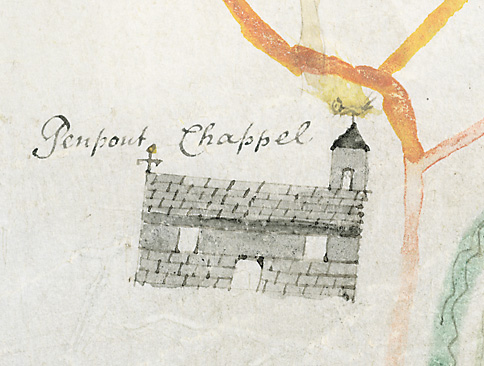 Penpont Chappel